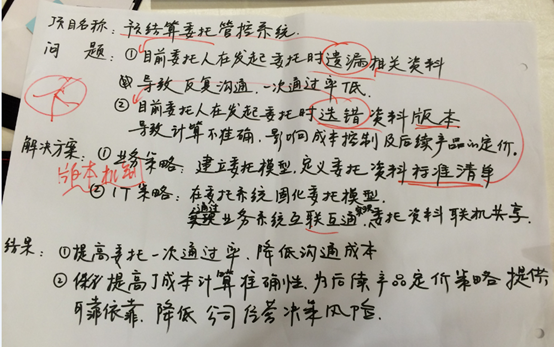 项目名称:预结算委托管控系统.
问 题:①目前委托人在发起委托时遗漏相关资料
导致反复沟通,一次通过率低.
②目前委托人在发起委托时选错资料版本
导致计算不准确.影响成本控制及后续产品的定价.
解决方案:①业务策略:建立委托模型,定义委托资料标准清单
版本机制
②IT策略:在委托系统固化委托模型.
通过业务系统互联互通,实现委托资料联机共享.
结果:①提高委托一次通过率.降低沟通成本
②提高了成本计算准确性,为后续产品定价策略提供
可靠依靠.降低公司经营决策风险.